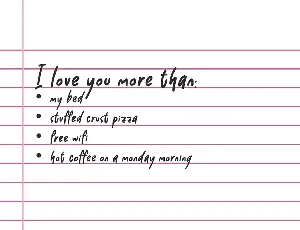 I love you more than:
• my bed
• stuffed crust pizza
• free wifi
• hot coffee on a monday morning